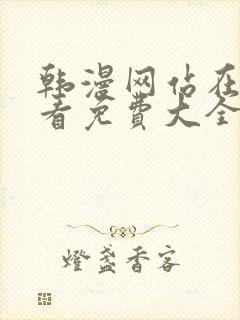 韩漫网站在
看免费大全
燈盞香客